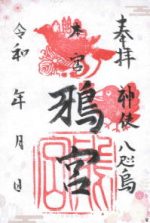 奉拝
神使 八咫烏
本宮
鴉宮
令和 年 月 日